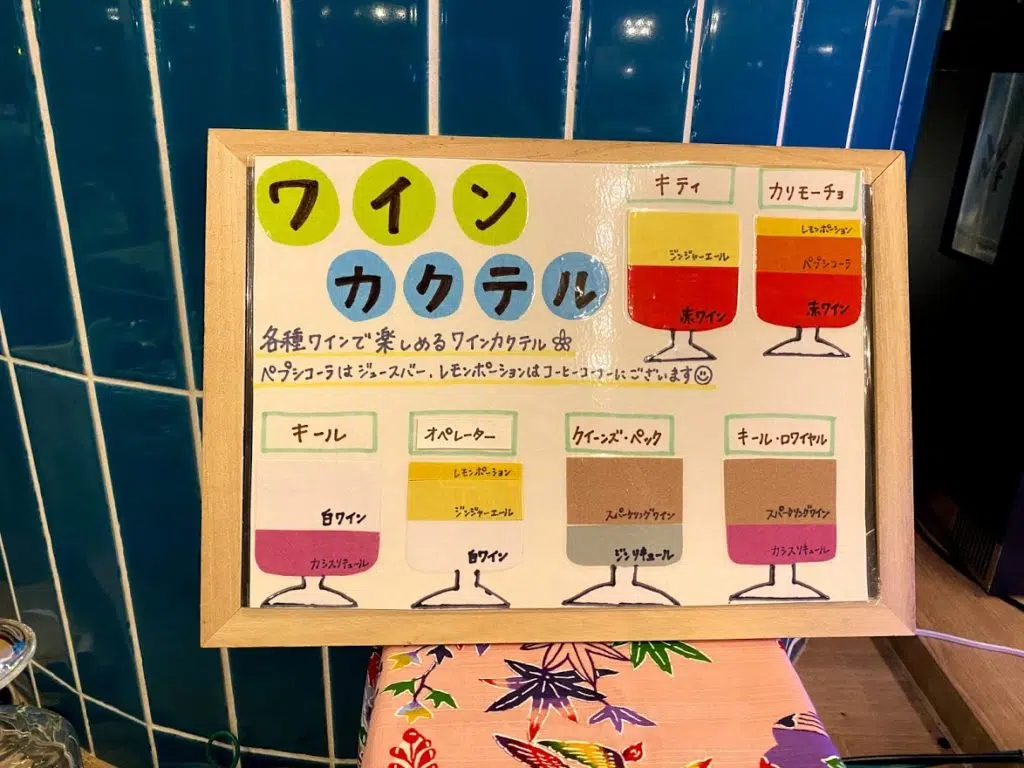 ワイン
カクテル
各種ワインで楽しめるワインカクテル
ペプシコーラはジュースバー、レモンポーションはコーヒーコーナーにございます
キティ
ジンジャーエール
赤ワイン
カリモーチョ
レモンポーション
ペプシコーラ
赤ワイン
キール
白ワイン
カシスリキュール
オペレーター
レモンポーション
ジンジャーエール
白ワイン
クイーンズ・ペック
スパークリングワイン
ジンリキュール
キール・ロワイヤル
スパークリングワイン
カシスリキュール